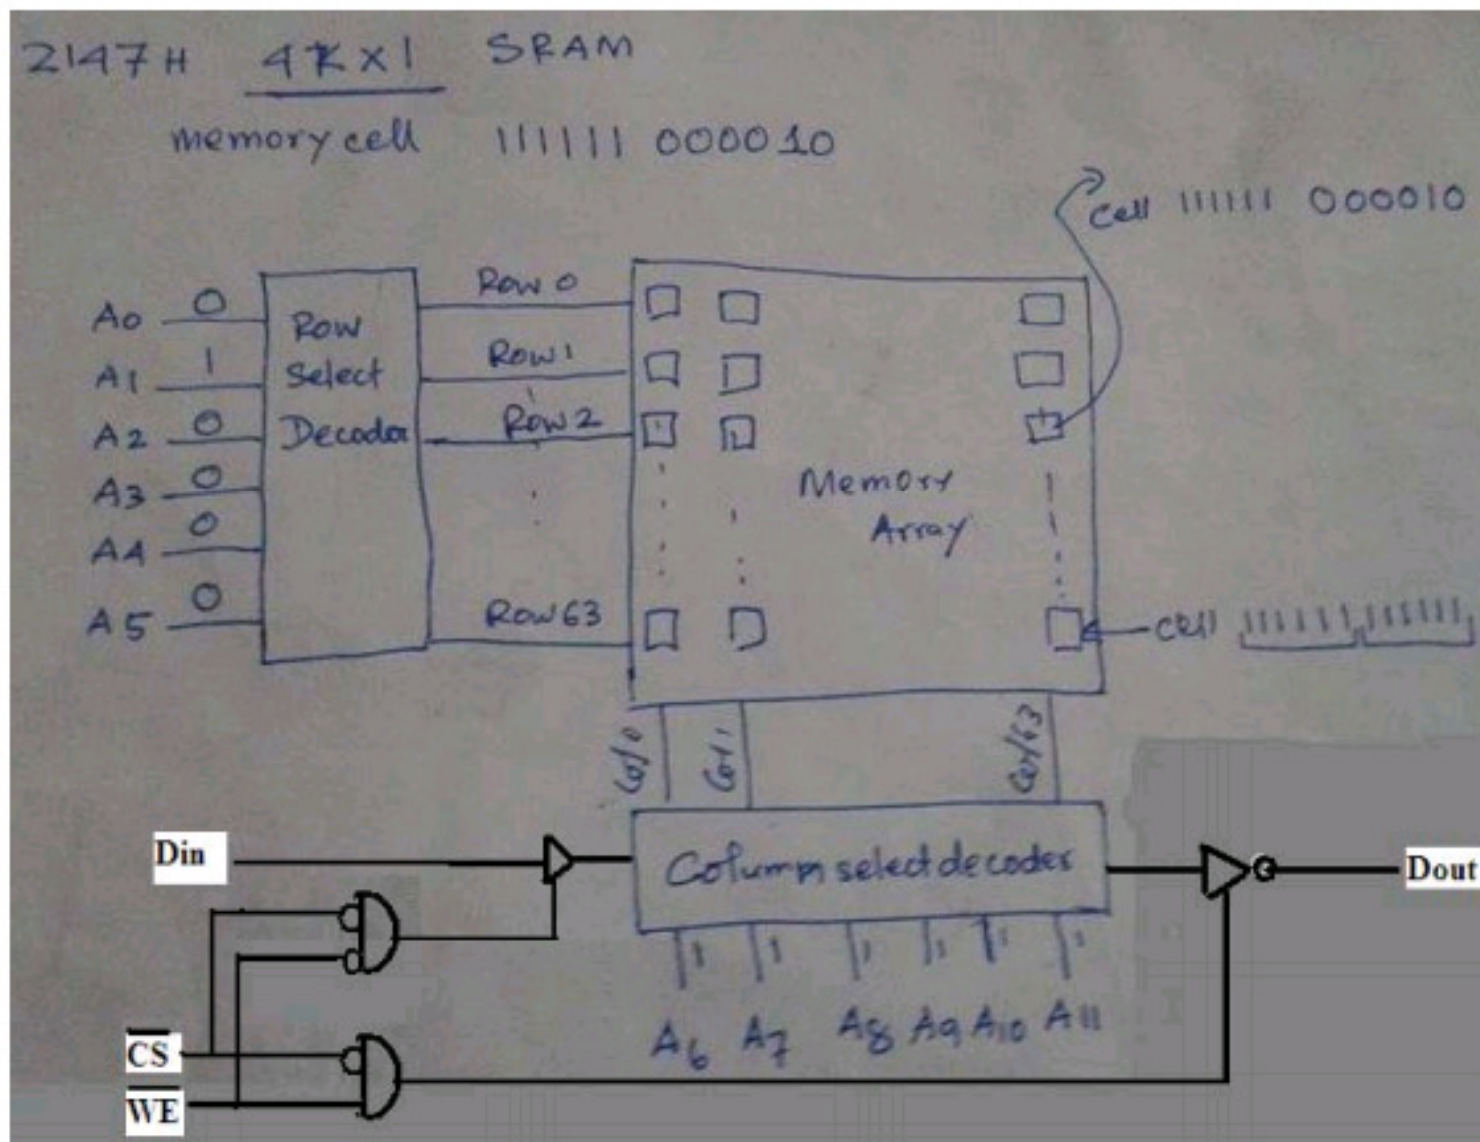 2147H 4K×1 SRAM
memory cell 111111 000010
Cell 111111 000010
A0 0
A1 1
A2 0
A3 0
A4 0
A5 0
Row
Select
Decoder
Row 0
Row 1
Row 2
Row 63
Memory
Array
cell 111111 111111
Col 0
Col 1
Col 63
Din
Column select decoder
Dout
1 1 1 1 1 1
A6 A7 A8 A9 A10 A11
CS
WE